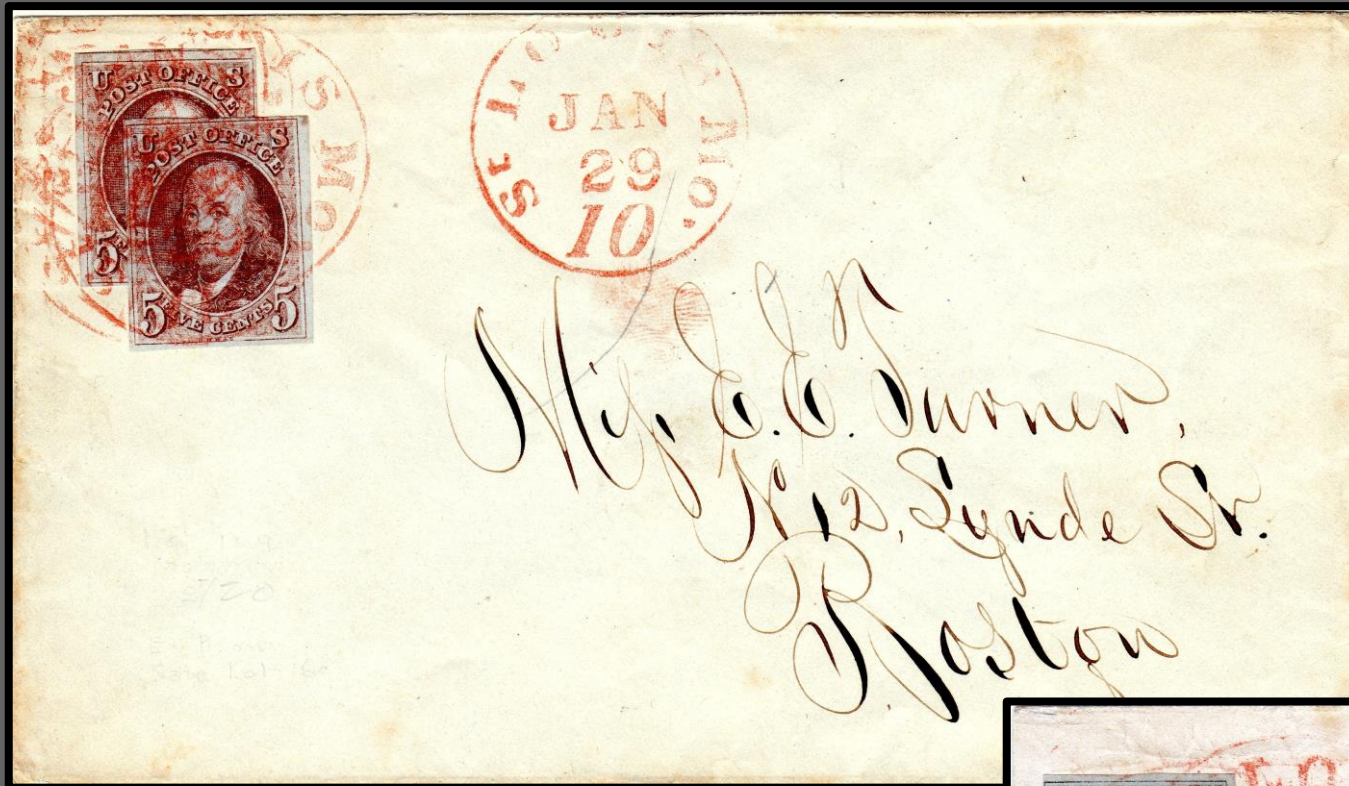 U S
POST OFFICE
5
U S
POST OFFICE
5 FIVE CENTS 5
YS MO
ST. LO MO.
JAN
29
10
Miſs E. E. Turner,
No 12, Lynde St.
Boston
LO